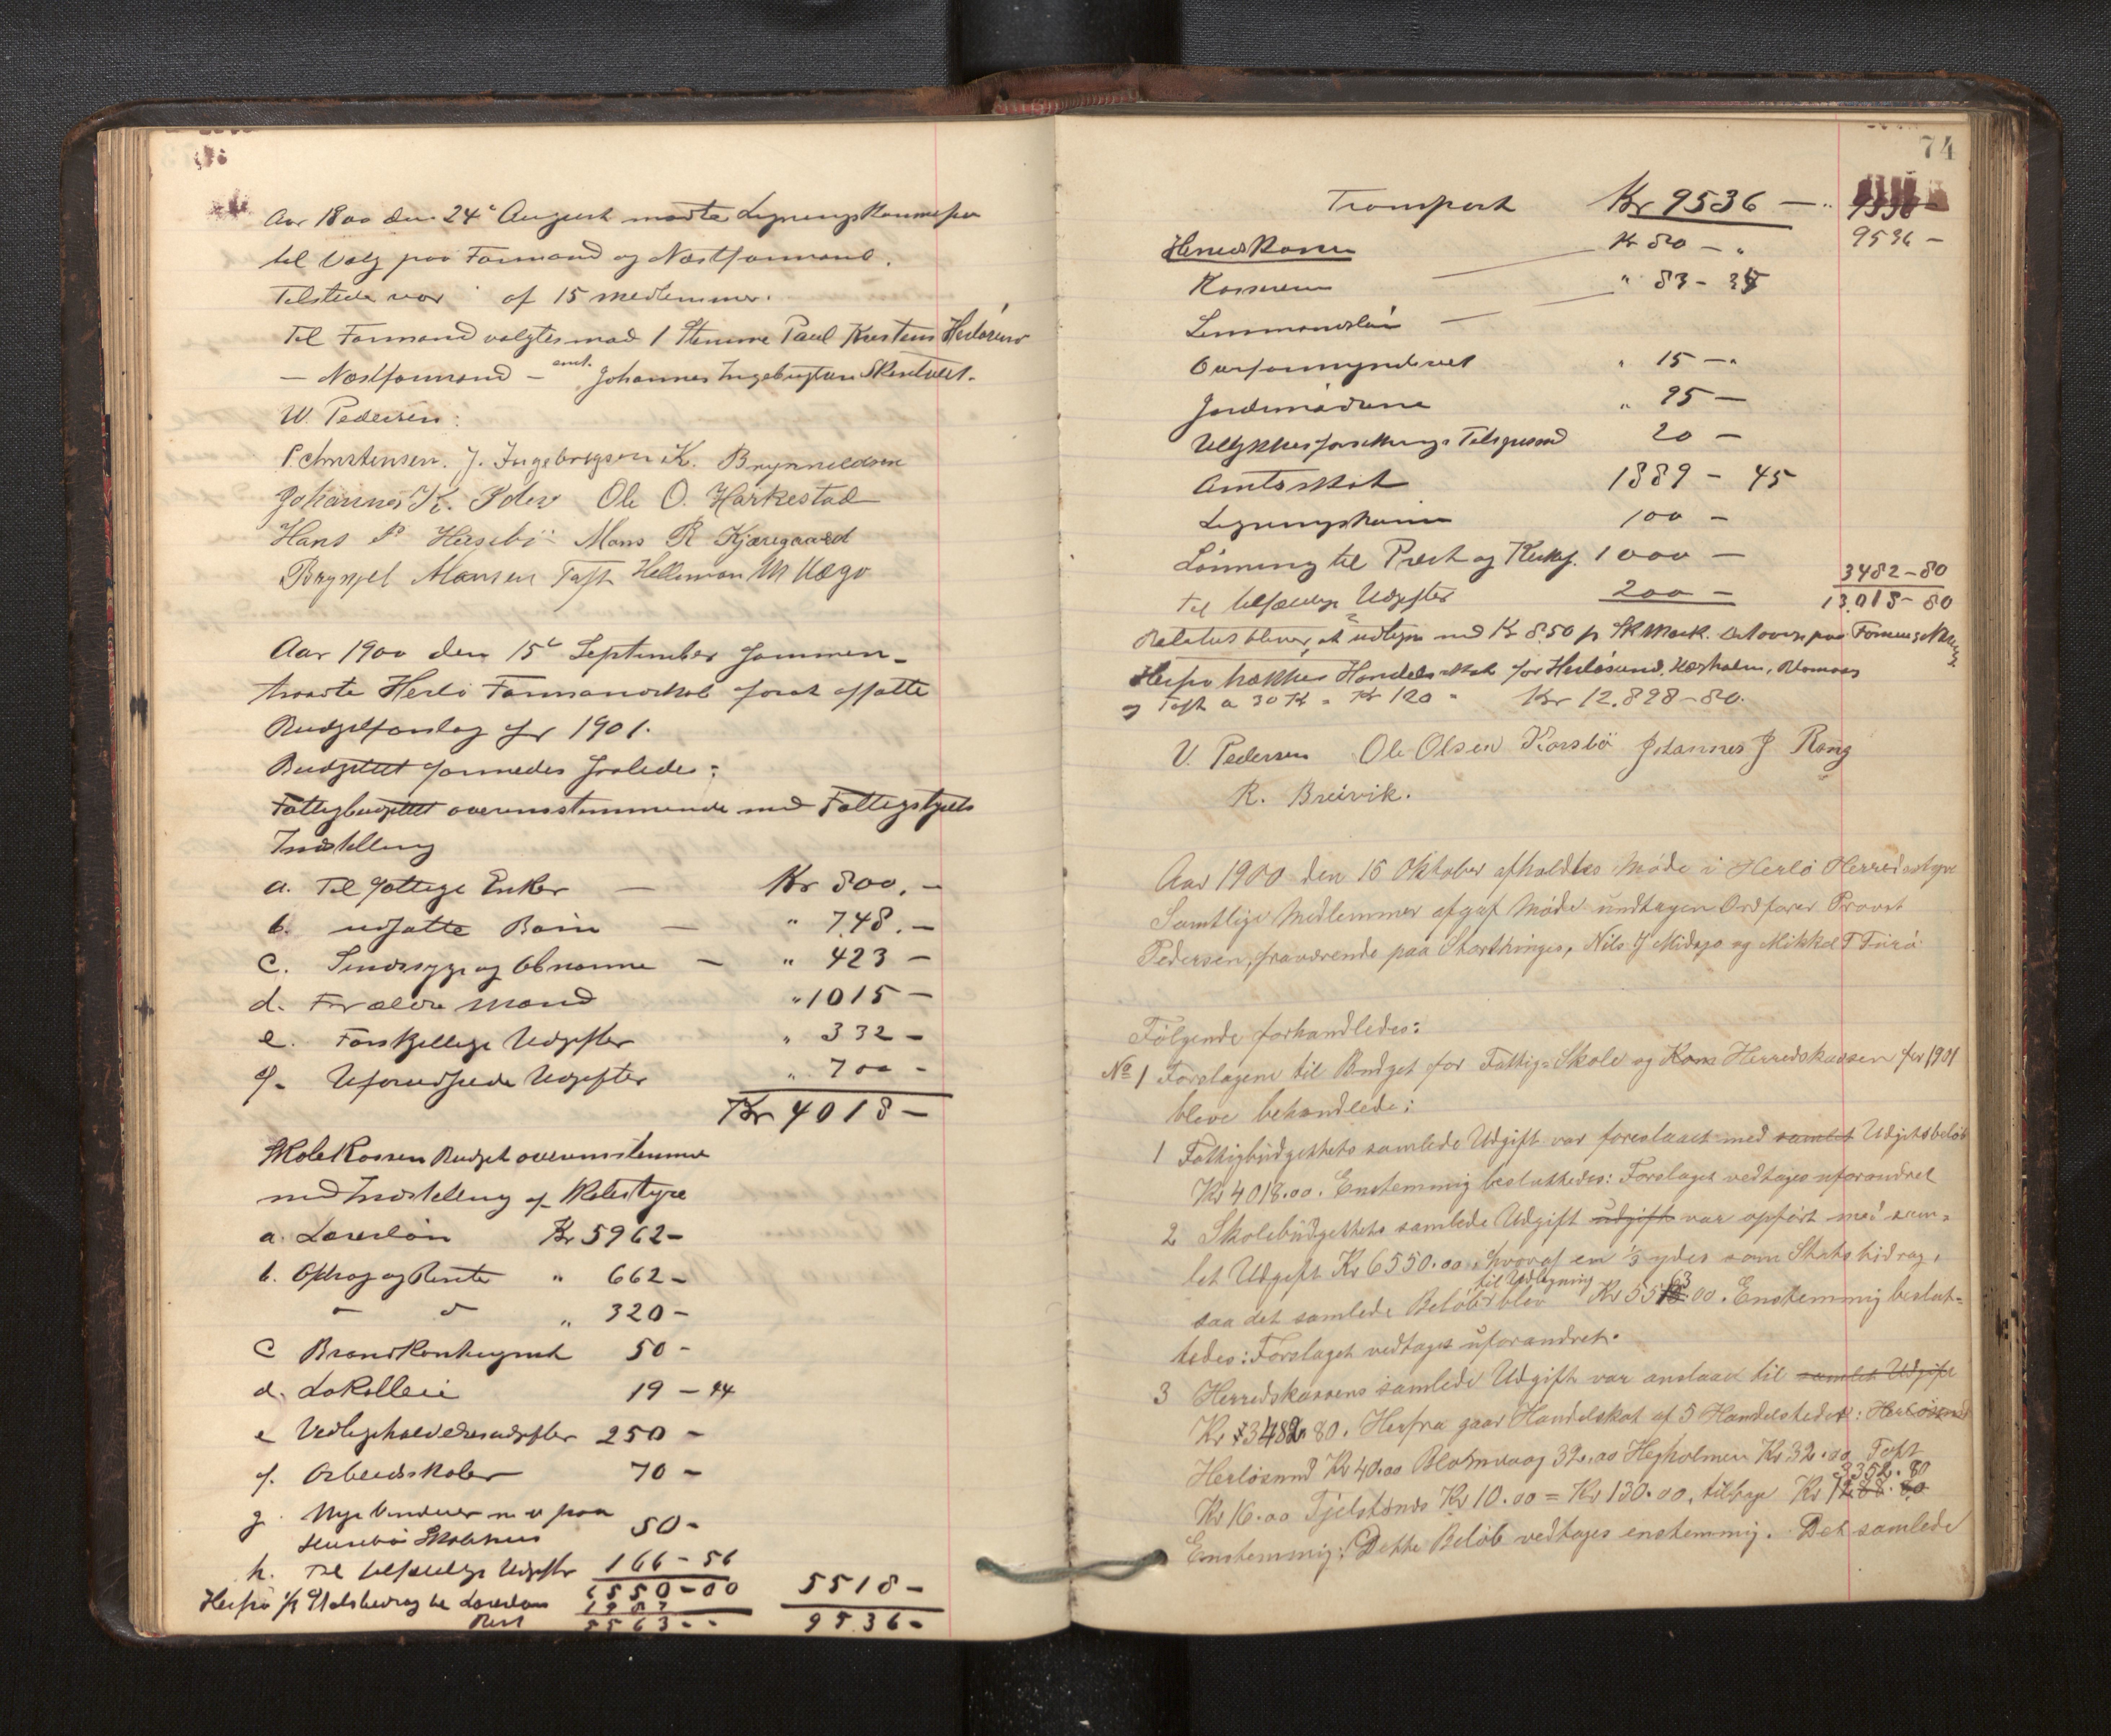 Aar 1800 den 24de August mødte Ligningskommission
til Valg paa Formand og Næstformand.
Tilstede var af 15 medlemmer.
Til Formand valgtes mod 1 Stemme Paul Kristens Herløsund
— Næstformand — enst. Johannes Ingebrigtsen Skentveit.
W. Pedersen:
P. Christensen. J. Ingebrigsen K. Brynnildsen
Johannes K. Ådew Ole O. Harkestad
Hans P Husebö Mons R Kjæregaard
Brynjel Monsen Toft Helleman M Vågø
Aar 1900 den 15de September sammen-
traadte Herlö Formandskab forat affatte
Budgetforslag for 1901.
Budgettet formedes saaledes:
Fattigbudgettet overensstemmende med Fattigstyrets
Indstilling
a. Til fattige Enker — Kr 800. —
b. udsatte Börn — " 748. —
c. Sindssyge og Abnorme — " 423 —
d. For ældre Mænd " 1015 —
e. Forskjellige Udgifter " 332 —
f. Uforudseede Udgifter " 700 -
Kr 4018 —
Skolekassen Budget overensstemmende
med Indstilling af Skolestyre
a. Lærerløn Kr 5962 —
b. Afdrag og Rente " 662 —
" " " 320 —
c Brandkontingent 50 -
d. Lokalleie 19 — 44
e Vedligeholdelsesudgifter 250 —
f. Arbeidsskoler 70 —
g. Nye Vinduer m. v. paa
Husebø Skolehus 50 -
h. Til tilfældige Udgifter 166 — 56
6550 — 00 5518 —
Herfra 1/3 Statsbidrag til Lærerløn 1987
Rest 5563 - - 9536 -
74
Transport Kr 9536 — " 9536 —
9536 —
Herredskassen Kr 80 — "
Kasseren " 83 - 35
Lensmandsløn —
Overformynderiet " 15 — "
Jordemødrene " 95 —
Ulykkesforsikrings Tilsynsmd 20 —
Amtsskat 1889 - 45
Ligningskomm 100 —
Lønning til Præst og Kirkes. 1000 —
3482 - 80
Til tilfældige Udgifter 200 — 13.018 - 80
Beløbet bliver at udligne med Kr 8.50 pr SkMark. Antoverpaa Formue
Herfra trækkes Handelsskat for Herløsund, Hegholmen, Blomvaag
og Toft a 30 Kr = Kr 120 " Kr 12.898 - 80.
V. Pedersen Ole Olsen Korsbö Johannes J Rong
R. Breivik.
Aar 1900 den 16 Oktober afholdtes Møde i Herlø Herredsstyre
Samtlige Medlemmer afgaf Møde undtagen Ordfører Provst
Pedersen, fraværende paa Storthinget, Nils J Midsjø og Mikkel T Turø.
Følgende forhandledes:
No 1 Forslagene til Budget for Fattig= Skole og Kom Herredskassen for 1901
bleve behandlede:
1 Fattigbudgettets samlede Udgift var foreslaaet med samlet Udgiftsbeløb
Kr 4018.00. Enstemmig besluttedes: Forslaget vedtages uforandret
2 Skolebudgettets samlede Udgift udgift var opført med sam=
let Udgift Kr 6550.00, hvoraf en 1/3 ydes som Statsbidrag,
saa det samlede Beløb til Udligning blev Kr 5563.00. Enstemmig beslut=
tedes: Forslaget vedtages uforandret.
3 Herredskassens samlede Udgift var anslaaet til samlet Udgift
Kr 3482.80. Herfra gaar Handelskat af 5 Handelsteder: Herløsund
Herløsund Kr 40.00 Blomvaag 32.00 Hegholmen Kr 32.00 Toft
Kr 16.00 Fjelstønds Kr 10.00 = Kr 130.00, tilbage Kr 1288.80 3352.80
Enstemmig: Dette Beløb vedtages enstemmig. Det samlede